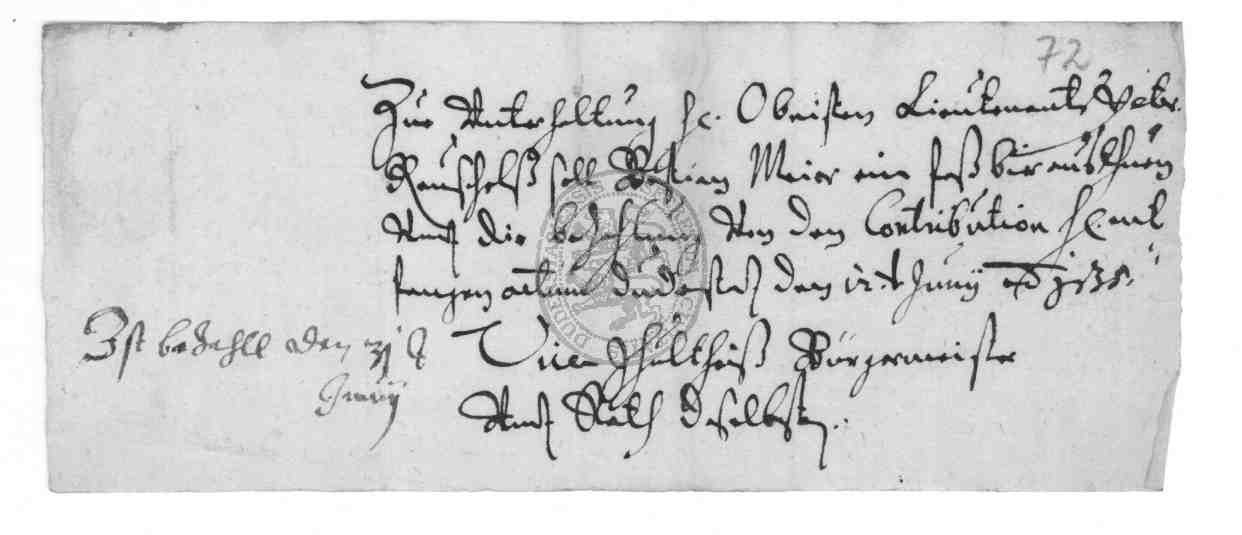 72
Zue Unterhaltung H. Obristen Lieutenants
soll Bastian Meier ein faß bier austhuen
Undt die bezahlung Von den Contribution H. ent
fangen actum Duderstadt den 12.t Junij
Vice Schultheiß Bürgermeister
Undt Rath daselbsten.
Ist bezahlt den
Junij